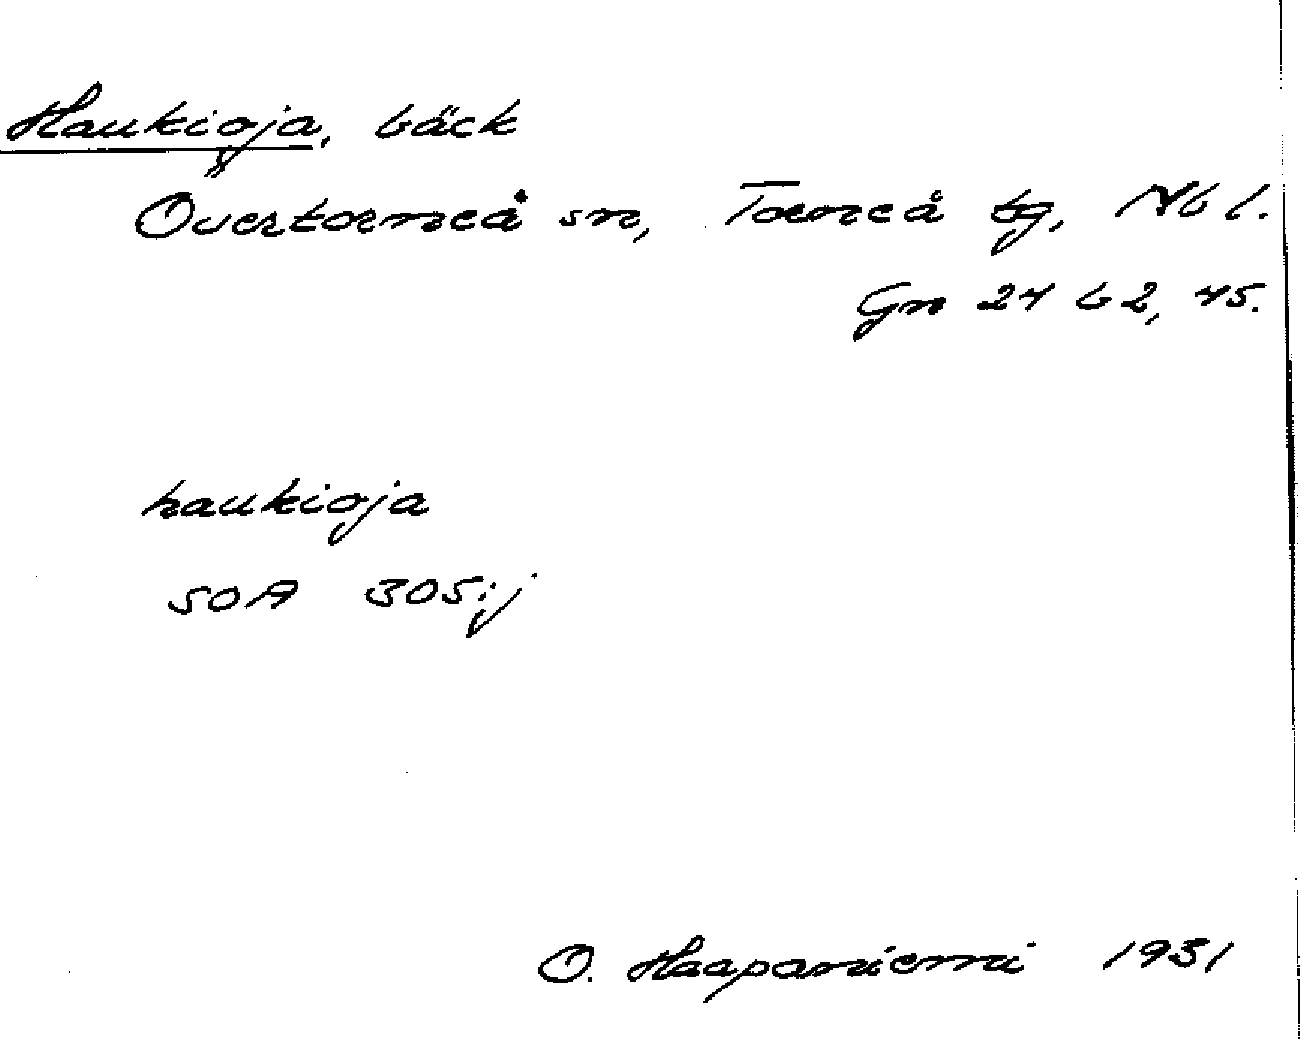 Haukioja, bäck
Övertorneå sn, Torneå tg, Nb l.
Gn 24 b 2, 45.
haukioja
SOA 305:j
O. Haapaniemi 1931